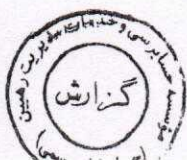 موسسه حسابرسی و خدمات مدیریت رهبین
گزارش
رسمی)